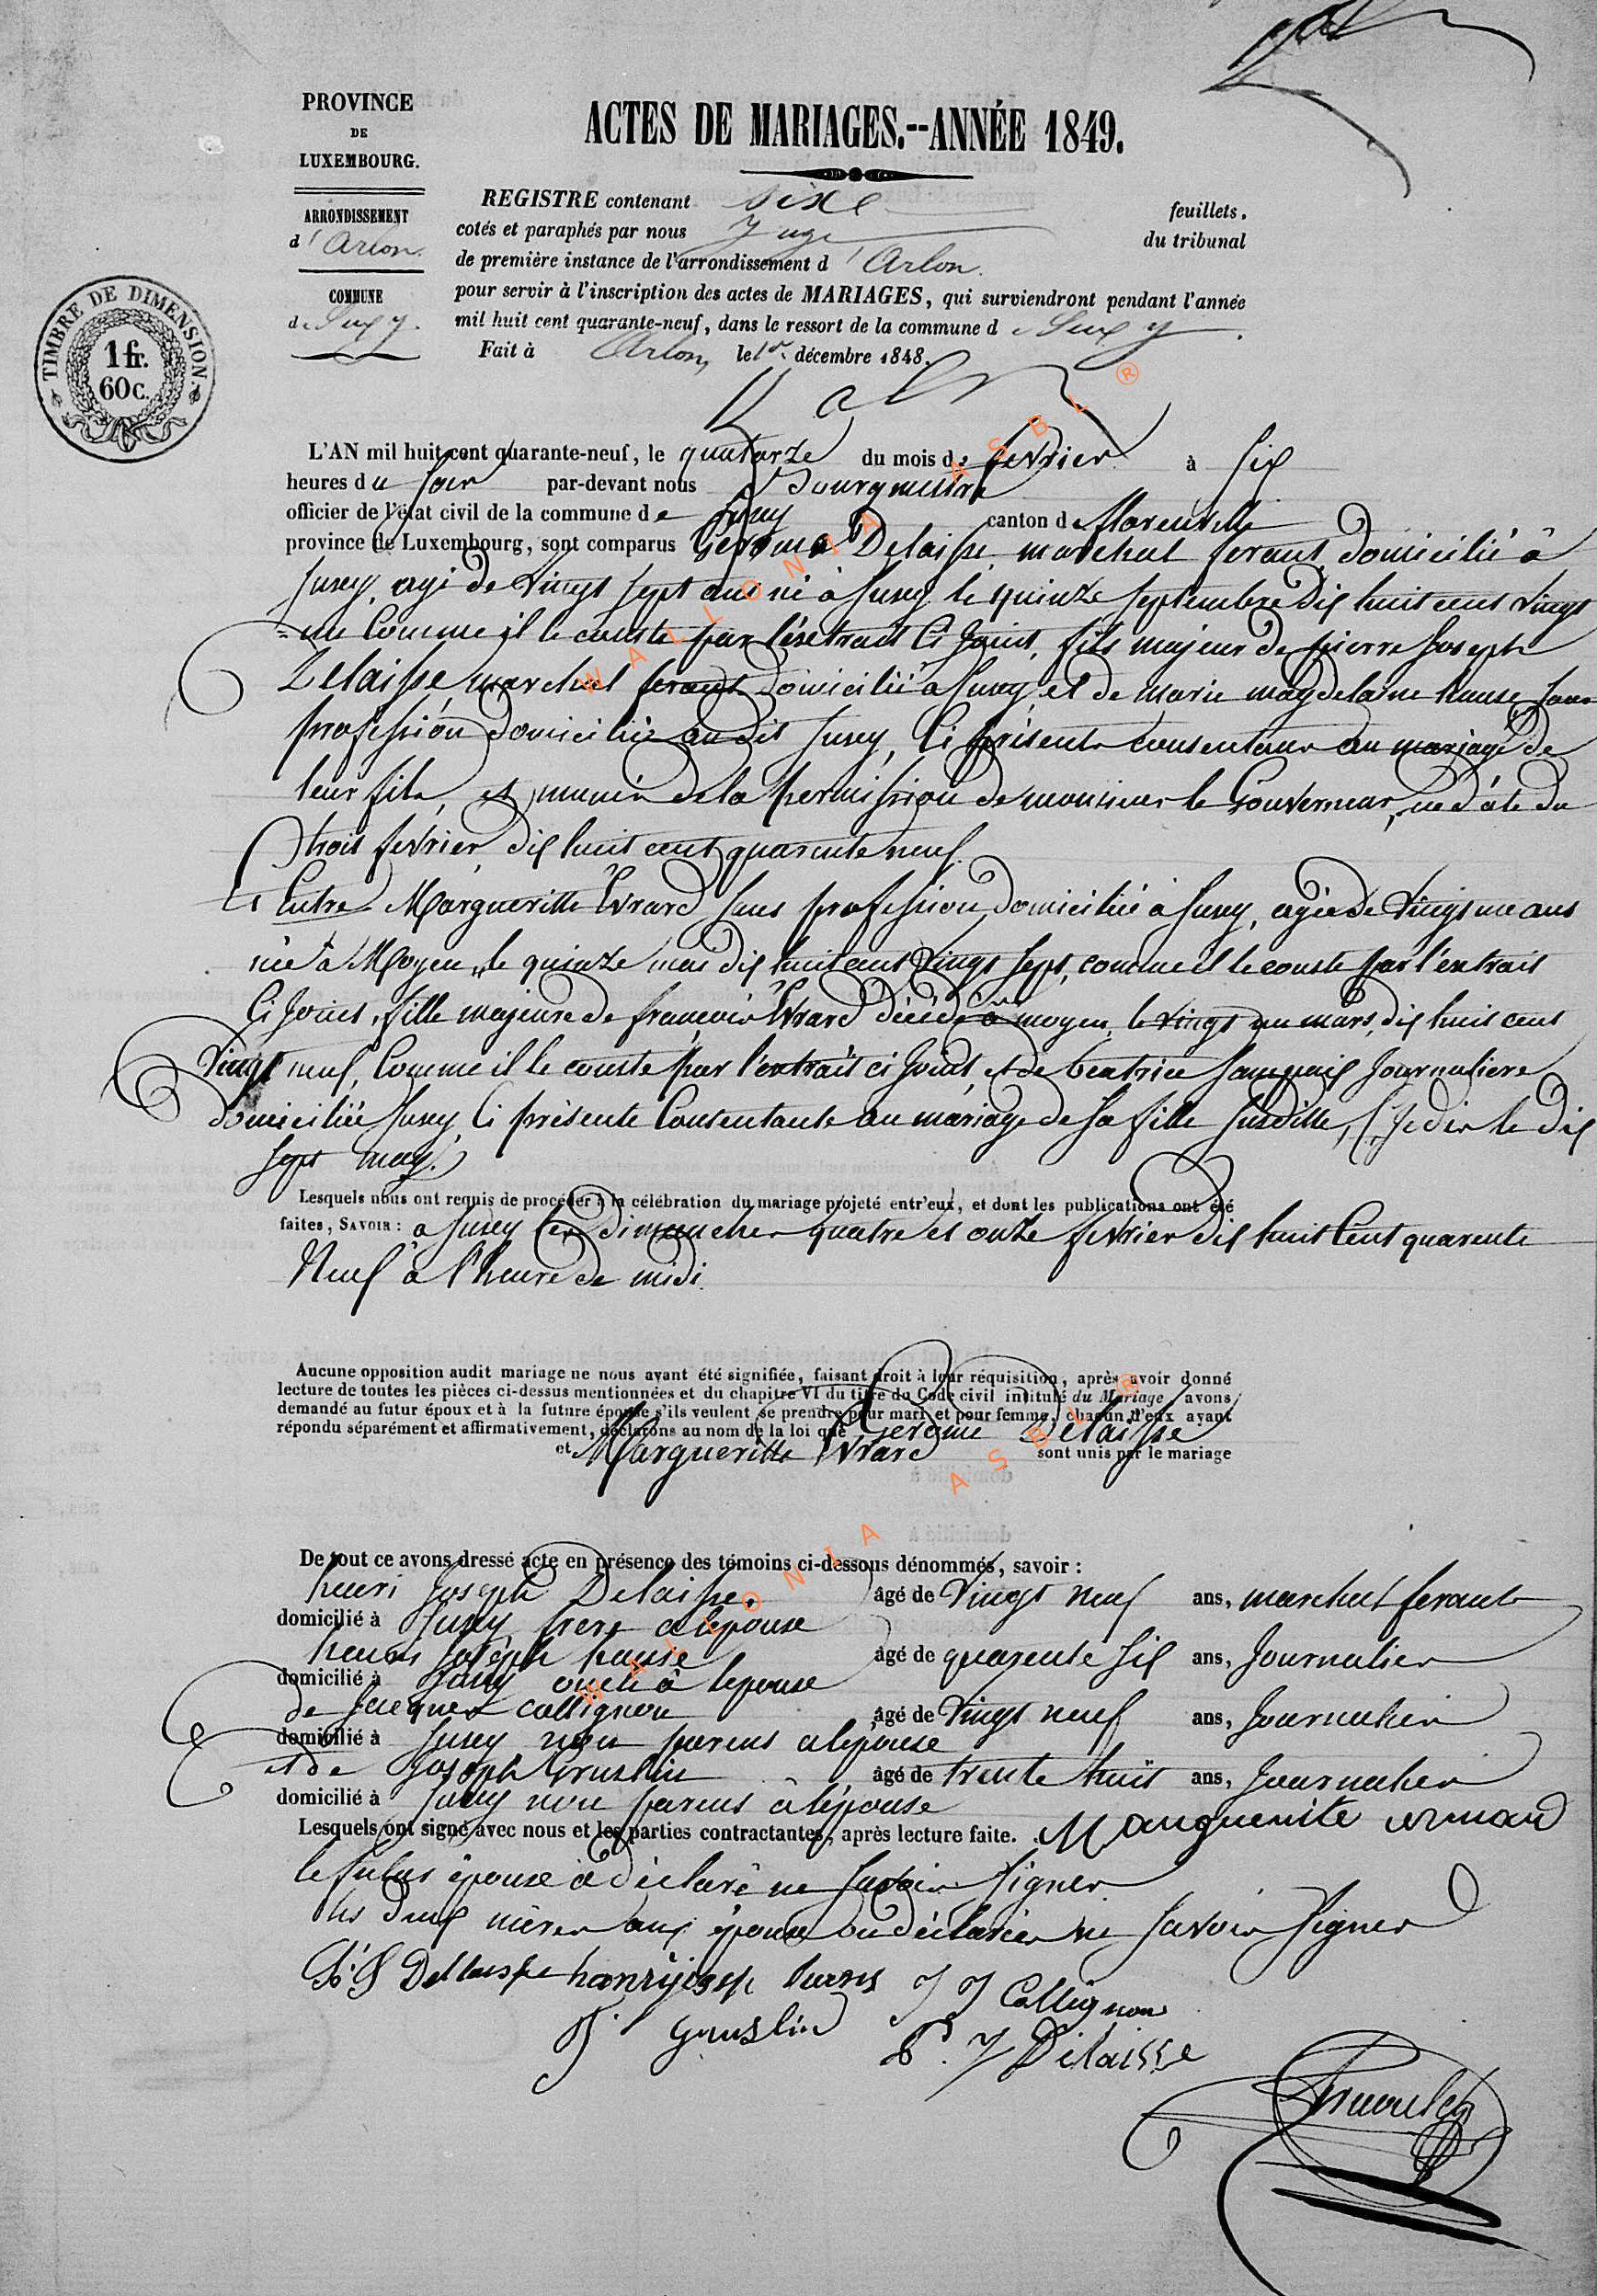 PROVINCE
DE
LUXEMBOURG.
ARRONDISSEMENT
d'Arlon.
COMMUNE
de Suxy.
TIMBRE DE DIMENSION.
1 fr.
60c.
ACTES DE MARIAGES.--ANNÉE 1849.
REGISTRE contenant sixe feuillets.
cotés et paraphés par nous Juge du tribunal
de première instance de l'arrondissement d'Arlon.
pour servir à l'inscription des actes de MARIAGES, qui surviendront pendant l'année
mil huit cent quarante-neuf, dans le ressort de la commune de Suxy.
Fait à Arlon, le 1er décembre 1848.
L'AN mil huit cent quarante-neuf, le quatorze du mois de fevrier à six
heures du soir par-devant nous Bourgmestre
officier de l'état civil de la commune de Suxy canton de Florenville
province de Luxembourg, sont comparus Gérome Delaisse marchal ferant domicilié à
Suxey, agé de vingt sept ans né à Suxey le quinze septembre dix huit cent vingt
=un Comme il le conste par l'extrait Ci joint, fils majeur de pierre Joseph
Delaisse marchal ferant domicilié à Suxey, et de marie magdelaine hanse sans
profession domiciliée au dit Suxey, Ci présents consentans au mariage de
leur fils, et munis de la permission de monsieur le Gouverneur, en date du
trois fevrier dix huit cent quarante neuf.
Et Entre Margueritte Evrard sans profession domiciliée à Suxey, agée de vingt un ans
née à Moyen, le quinze mai dix huit cent vingt sept, comme il le conste par l'extrait
Ci joint, fille majeure de francois Evrard décédé à moyen, le vingt un mars dix huit cent
vingt neuf, Comme il le conste par l'extrait ci joint, et de beatrice Journaliere
domiciliée Suxey, Ci présente Consentante au mariage de sa fille susditte, (Je dis le dix
sept may.)
Lesquels nous ont requis de procéder à la célébration du mariage projeté entr'eux, et dont les publications ont été
faites, SAVOIR : à Suxey les dimanches quatre et onze fevrier dix huit Cent quarente
Neuf à l'heure de midi.
Aucune opposition audit mariage ne nous ayant été signifiée, faisant droit à leur réquisition, après avoir donné
lecture de toutes les pièces ci-dessus mentionnées et du chapitre VI du titre du Code civil intitulé du Mariage avons
demandé au futur époux et à la future épouse s'ils veulent se prendre pour mari et pour femme, chacun d'eux ayant
répondu séparément et affirmativement, déclarons au nom de la loi que Gerome Delaisse
et Margueritte Evrard sont unis par le mariage
De tout ce avons dressé acte en présence des témoins ci-dessous dénommés, savoir :
henri Joseph Delaisse. âgé de vingt neuf ans, marchal ferant
domicilié à Suxey, frere a lepouse
henri Joseph hanse âgé de quarente six ans, Journalier
domicilié à Suxy oncle à lepouse
de Jacques Collignon âgé de vingt neuf ans, Journalier
domicilié à Suxey non parens a lépouse
et de Joseph Gruslin âgé de trente huit ans, Journalier
domicilié à Suxy non parens a lépouse
Lesquels ont signé avec nous et les parties contractantes, après lecture faite. Marguerite
le futur épouse a déclaré ne savoir signer
les deux mères aux épouse ont déclarées ne savoir signer
Dellaisse hanrijosep hans J J Collignon
J. gruslin P. J Delaisse
WALLONIA ASBL ®
WALLONIA ASBL ®